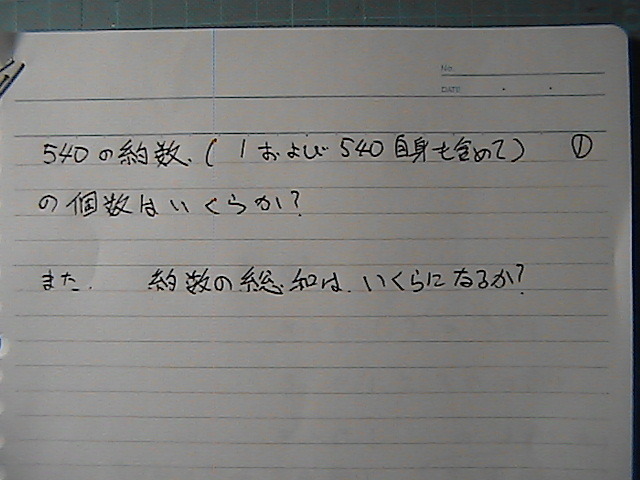 No.
DATE
540の約数.(1および540自身も含めて) ①
の個数はいくらか?
また. 約数の総和は.いくらになるか?